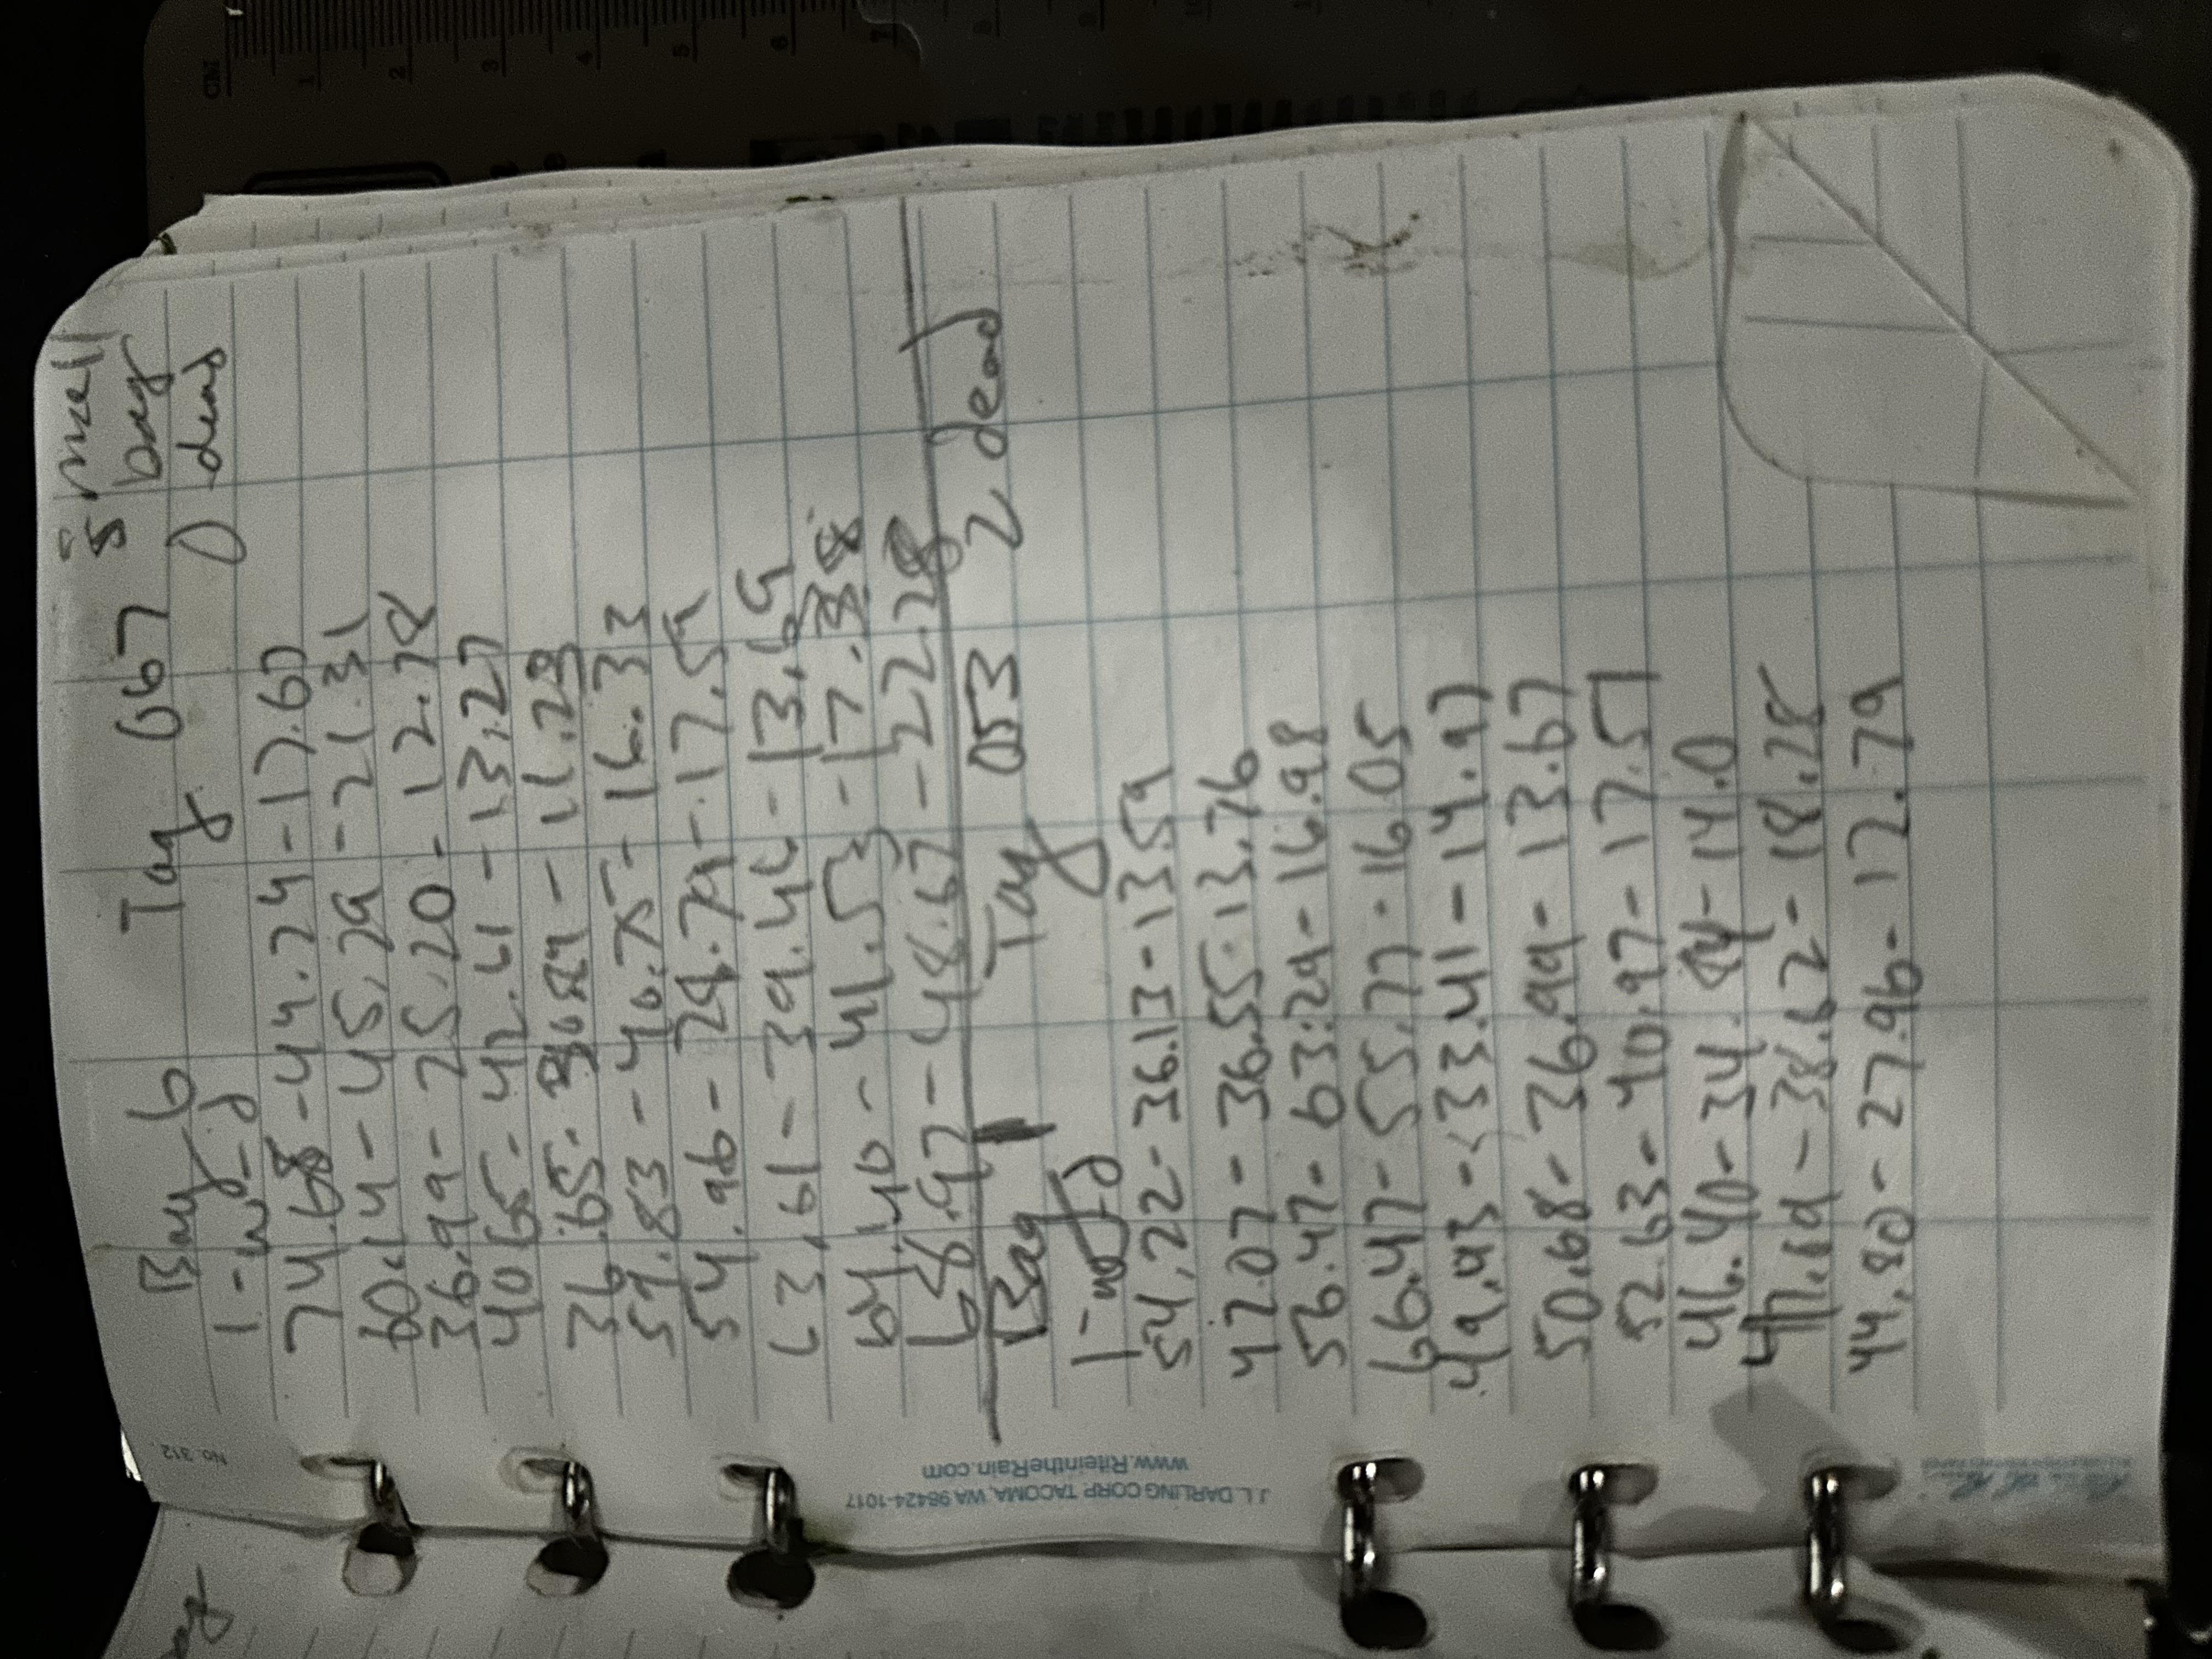 J. L. DARLING CORP. TACOMA, WA 98424-1017
www.RiteintheRain.com
Rite in the Rain
No. 312
small
Bag 6 Tag 667 bag
1-wf-d 0 dead
74.68 - 44.24 - 17.67
60.14 - 45.29 - 21.31
36.99 - 25.20 - 12.78
40.65 - 42.41 - 13.27
36.65 - - 11.23
57.83 - 40.75 - 16.33
54.96 - 29.79 - 17.59
63.61 - 39.46 - 13.69
64.46 - 41.53 - 17.38
68.97 - 48.67 - 22.28
Bag 1 Tag 053 2 dead
1-wf-d
54.22 - 36.13 - 13.59
47.07 - 36.55 - 13.76
56.47 - 63.29 - 16.98
66.47 - 55.77 - 16.05
49.93 - 33.41 - 14.97
50.68 - 36.99 - 13.67
52.63 - 40.97 - 17.57
46.40 - 34. - 14.0
47.69 - 38.62 - 18.28
44.80 - 27.96 - 12.79